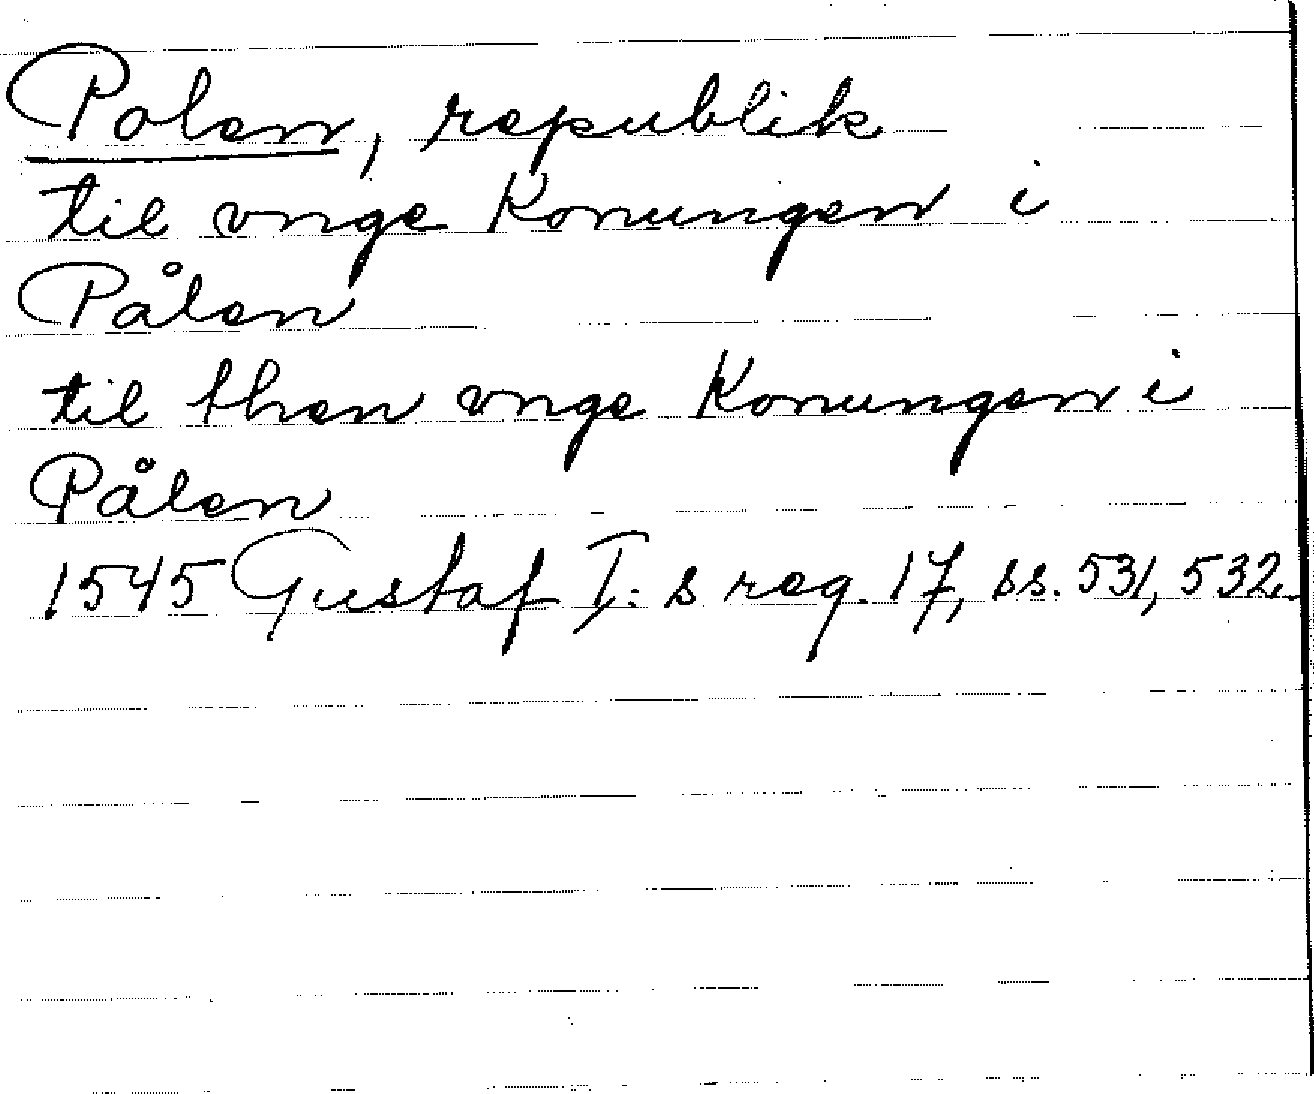 Polen, republik
til vnge Konungen i
Pålen
til then vnge Konungen i
Pålen
1545 Gustaf I:s reg. 17, ss. 531, 532.